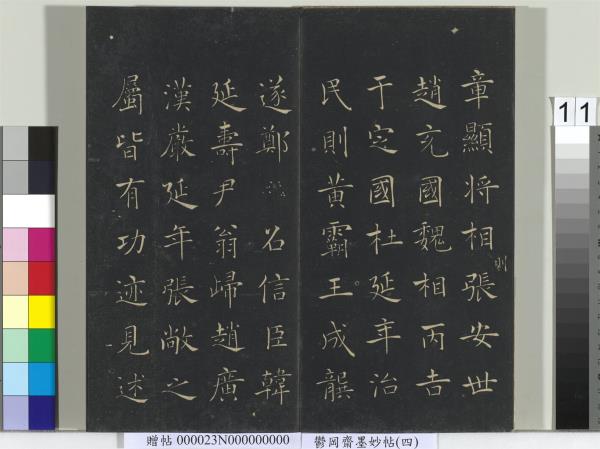 章顯將相則張安世
趙充國魏相丙吉
于定國杜延年治
民則黃霸王成龔
遂鄭召信臣韓
延壽尹翁歸趙廣
漢嚴延年張敞之
屬皆有功迹見述
11
贈帖 000023N000000000
鬱岡齋墨妙帖(四)